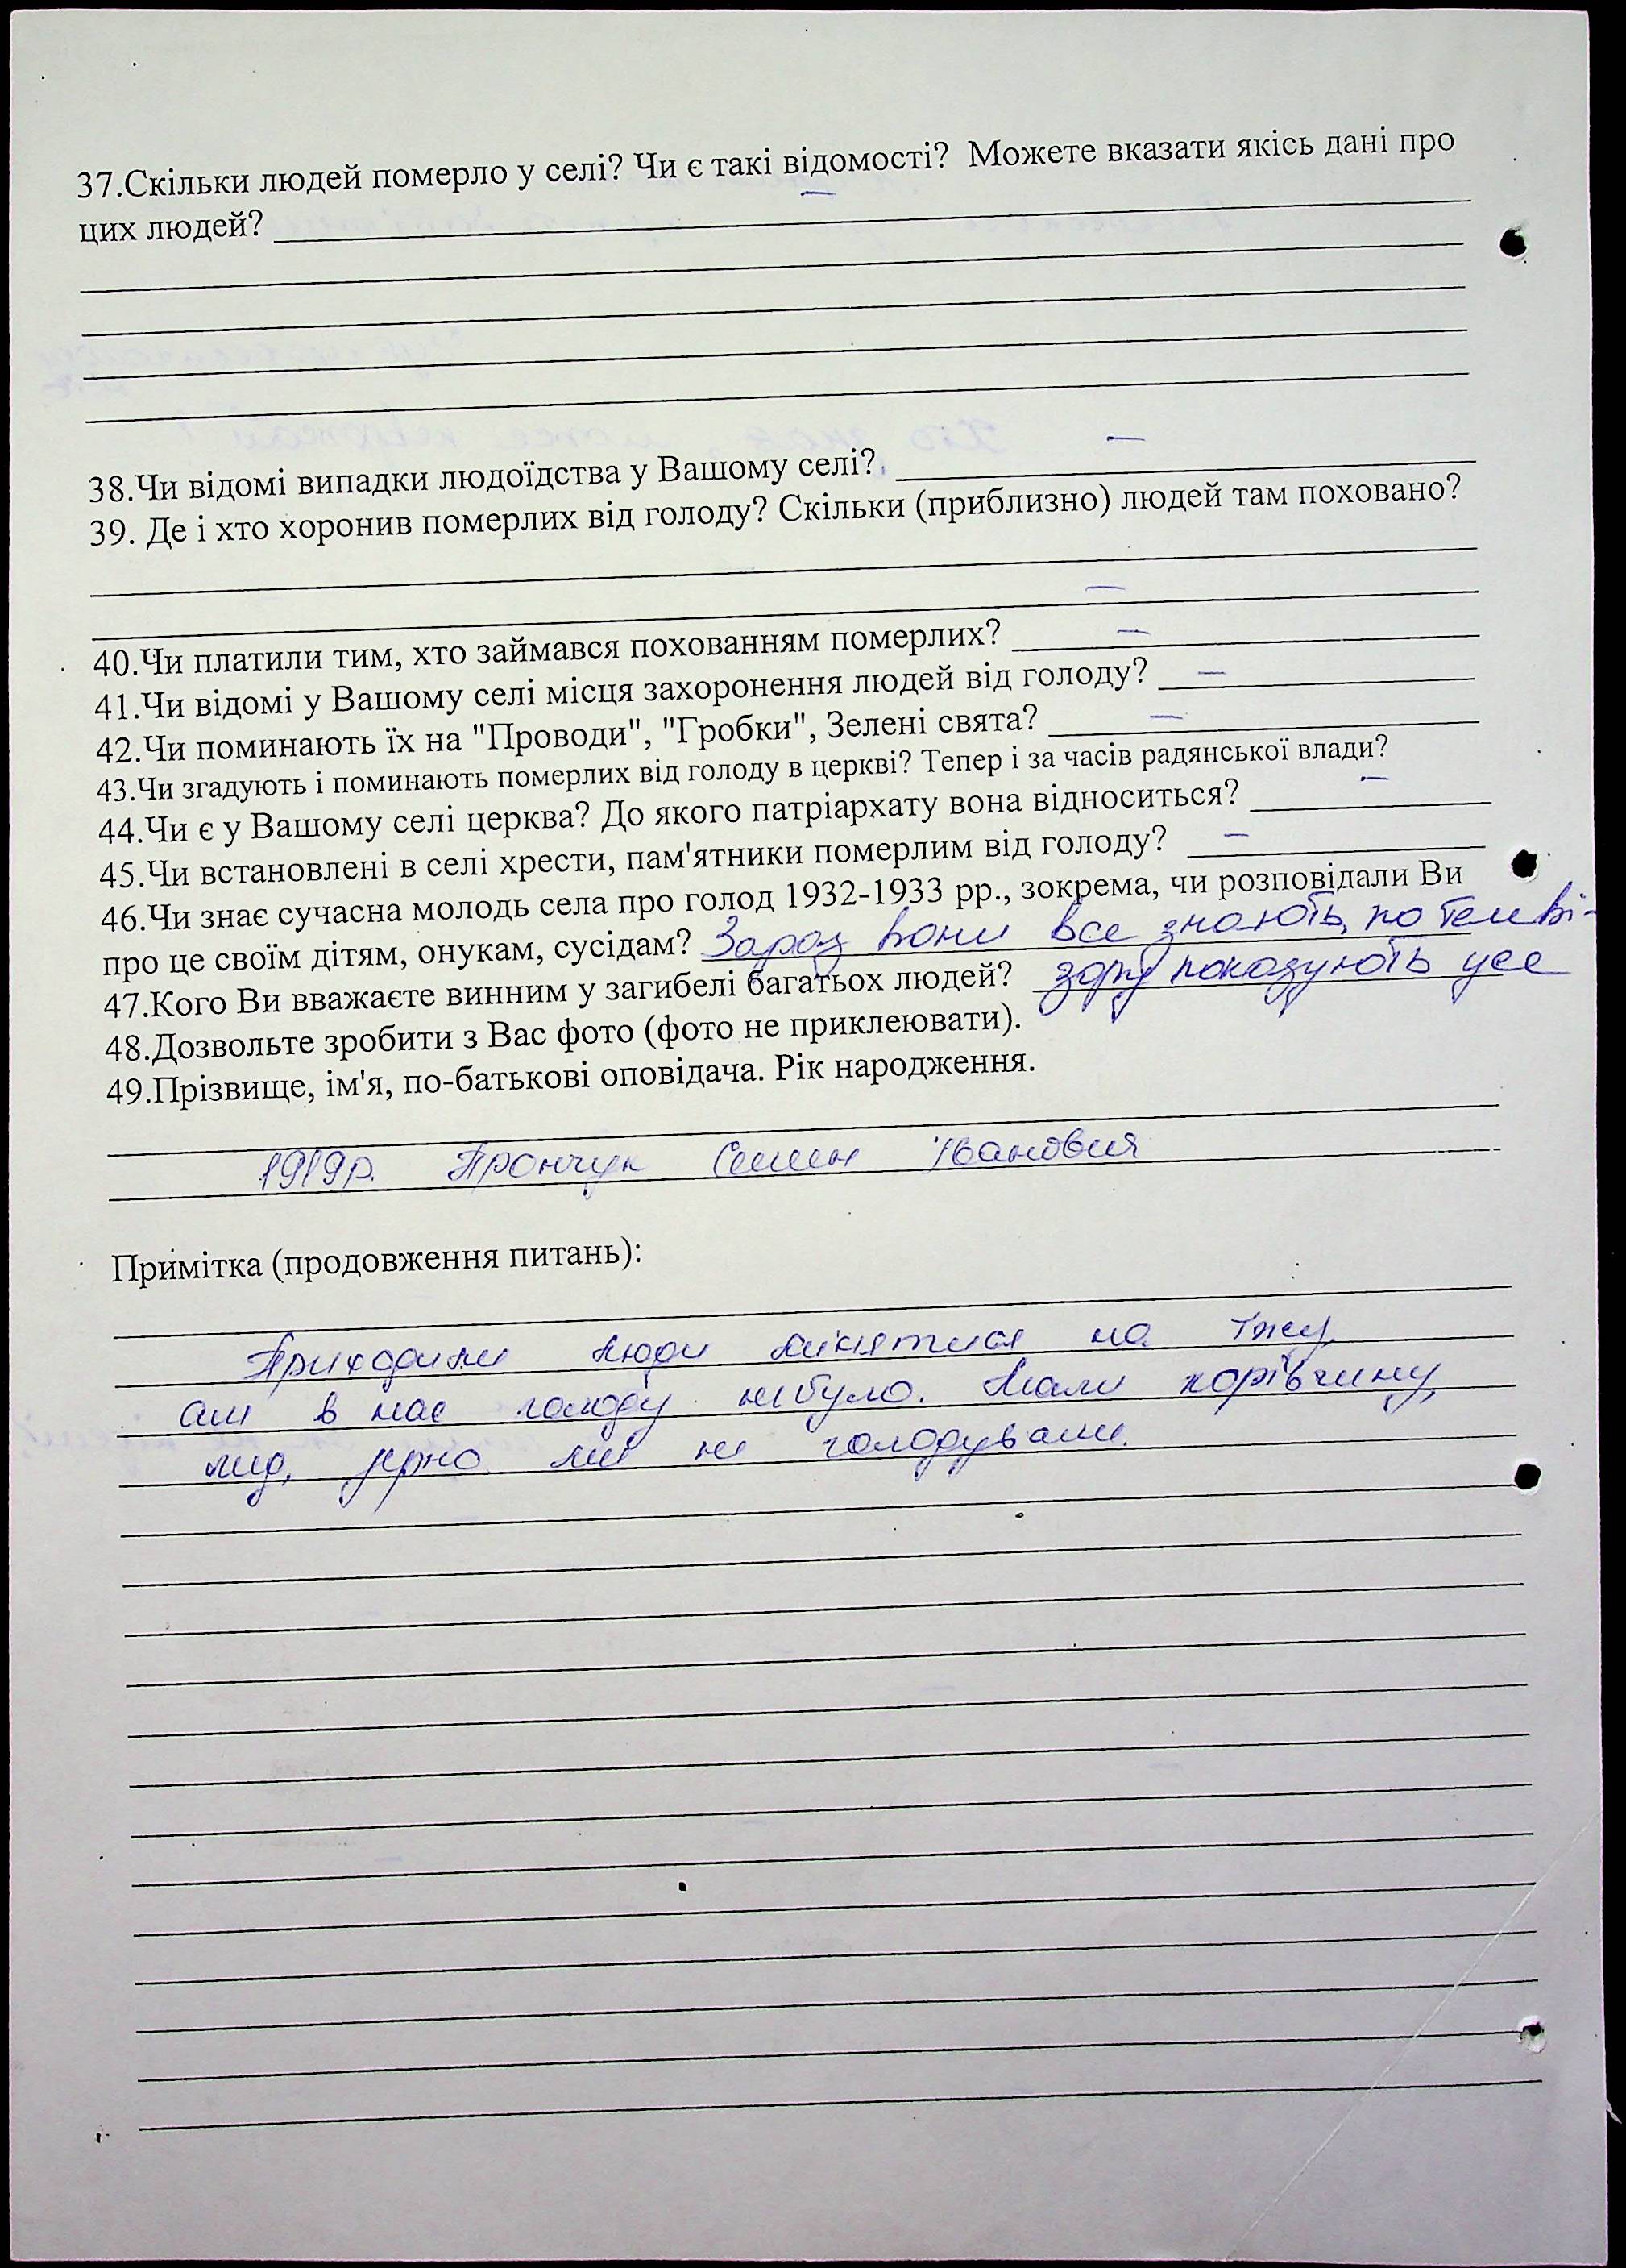 37.Скільки людей померло у селі? Чи є такі відомості? Можете вказати якісь дані про
цих людей? –
38.Чи відомі випадки людоїдства у Вашому селі? –
39. Де і хто хоронив померлих від голоду? Скільки (приблизно) людей там поховано?
–
40.Чи платили тим, хто займався похованням померлих? –
41.Чи відомі у Вашому селі місця захоронення людей від голоду? –
42.Чи поминають їх на "Проводи", "Гробки", Зелені свята? –
43.Чи згадують і поминають померлих від голоду в церкві? Тепер і за часів радянської влади?
44.Чи є у Вашому селі церква? До якого патріархату вона відноситься? –
45.Чи встановлені в селі хрести, пам'ятники померлим від голоду? –
46.Чи знає сучасна молодь села про голод 1932-1933 рр., зокрема, чи розповідали Ви
про це своїм дітям, онукам, сусідам? Зараз вони все знають, по телеві-
47.Кого Ви вважаєте винним у загибелі багатьох людей? зору показують усе
48.Дозвольте зробити з Вас фото (фото не приклеювати).
49.Прізвище, ім'я, по-батькові оповідача. Рік народження.
1919р. Прончук Семен Іванович
Примітка (продовження питань):
Приходили люди мінятися на їжу,
але в нас голоду не було. Мали корівчину,
зерно ми не голодували.